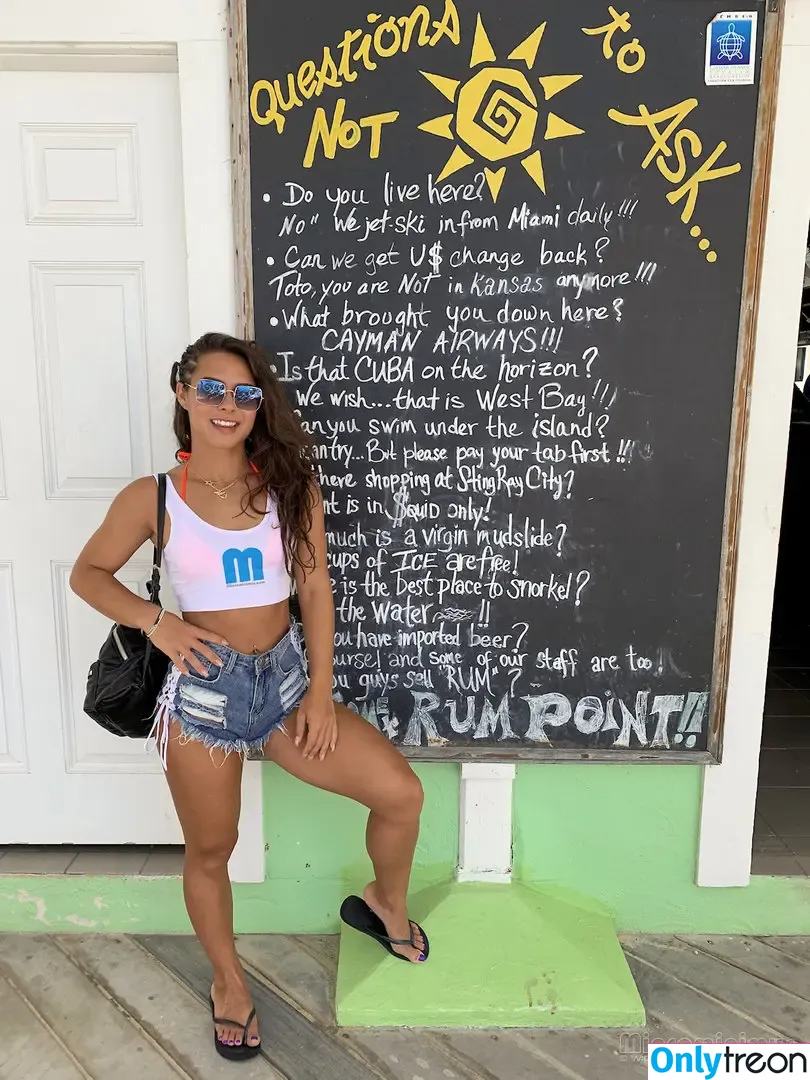 Questions
to
Not
Ask...
• Do you live here?
No" We jet-ski in from Miami daily!!!
• Can we get U$ change back?
Toto, you are Not in Kansas anymore!!!
• What brought you down here?
CAYMAN AIRWAYS!!!
• Is that CUBA on the horizon?
We wish...that is West Bay!!)
an you swim under the island?
antry...But please pay your tab first!!!
here shopping at StingRay City?
nt is in $quid only!
much is a virgin mudslide?
cups of ICE are free!
e is the best place to snorkel?
the water !!
ou have imported beer?
ourse! and some of our staff are too!
u guys sell "RUM"?
RUM POINT!!
m
Onlytreon